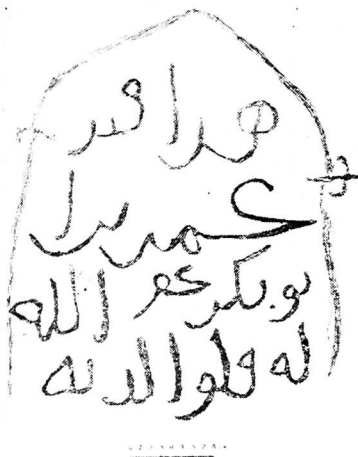 هدا قبر
عمر برا
بو بكر غفر الله
له ولوالديه